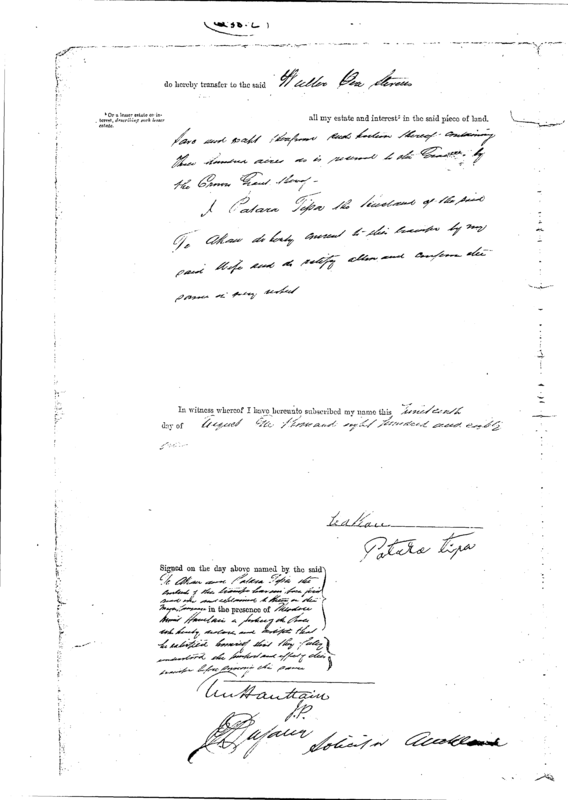 do hereby transfer to the said
* Or a lesser estate or in-
terest, describing such lesser
estate.
all my estate and interest* in the said piece of land.
save and except thereout such portion thereof containing
Three hundred acres as is reserved to the by
the Crown Grant thereof
I Patara Tipa the husband of the said
Te Akau do hereby consent to this transfer by my
said Wife and do ratify allow and confirm the
same in every respect
In witness whereof I have hereunto subscribed my name this Nineteenth
day of August One thousand eight hundred and eighty
Te Akau
Patara Tipa
Signed on the day above named by the said
Te Akau and Patara Tipa the
contents of this transfer having been first
and explained to them in the
in the presence of Theodore
Haultain a Justice of the Peace
hereby declare and that
he satisfied himself that they fully
understood the and effect of this
transfer before signing the same
Haultain
J.P.
Solicitor Auckland